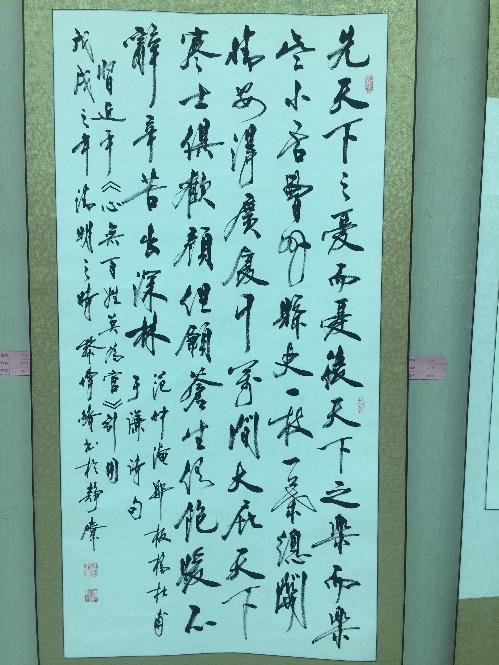 先天下之憂而憂後天下之樂而樂
些小吾曹州縣吏一枝一葉總關
情安得廣廈千萬間大庇天下
寒士俱歡顏但願蒼生俱飽暖不
辭辛苦出深林
范仲淹鄭板橋杜甫
于謙詩句
習近平《心無百姓莫為官》用
戊戌之年清明之時書於靜